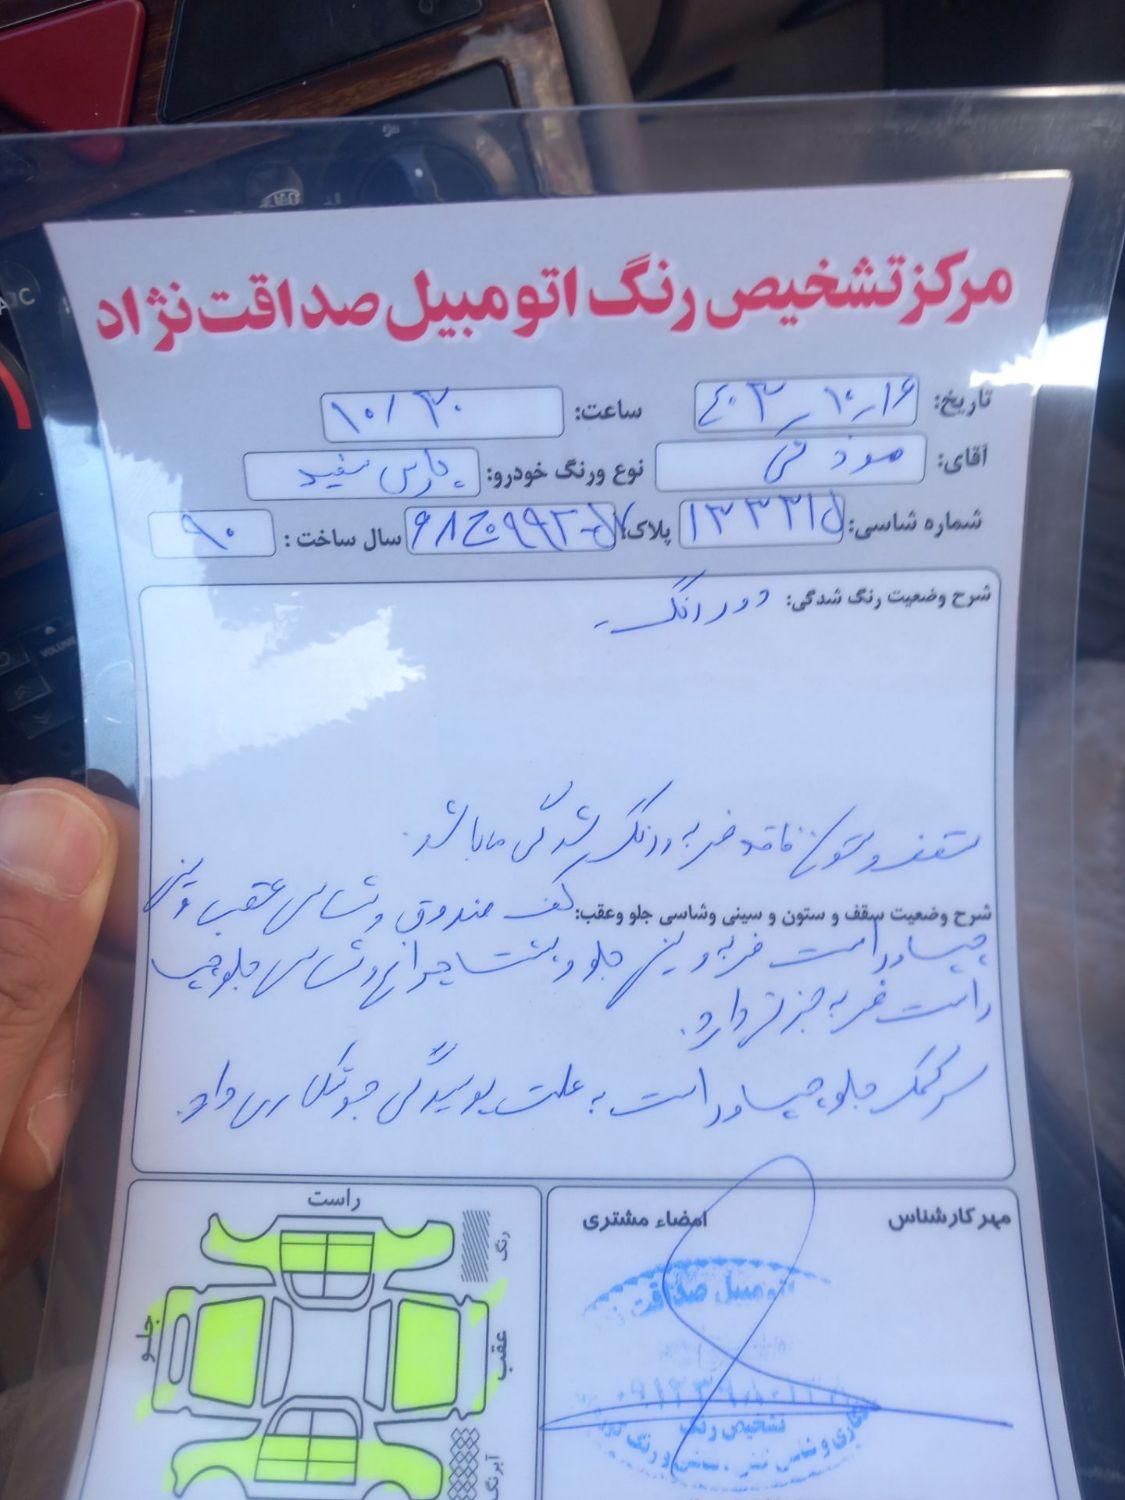 مرکز تشخیص رنگ اتومبیل صداقت نژاد
تاریخ: ۴۰۳/۱۰/۱۶
ساعت: ۱۰/۳۰
آقای:
نوع ورنگ خودرو: پارس سفید
شماره شاسی:
پلاک:
سال ساخت: ۹۰
شرح وضعیت رنگ شدگی: دور رنگ
سقف و ستونها فاقد ضربه و رنگ شدگی می باشد.
شرح وضعیت سقف و ستون و سینی وشاسی جلو وعقب: کف صندوق و شاسی عقب و سینی
چپ و راست ضربه و سینی جلو و پشت چراغها و شاسی جلو چپ
راست ضربه جزئی دارد.
سر کمک جلو چپ و راست به علت پوسیدگی جوشکاری دارد.
مهر کارشناس
امضاء مشتری
راست
رنگ
جلو
عقب
آبرنگ
اتومبیل صداقت
تشخیص رنگ